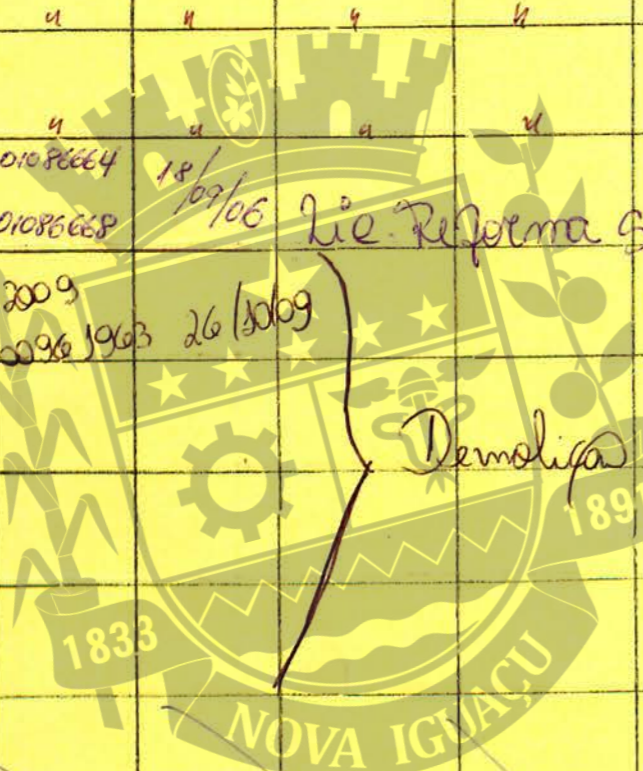 " " " "
" " " "
01086664 18/09/06
01086668 Lic. Reforma
2009
00961963 26/10/09
Demolição
1833
189
NOVA IGUAÇU